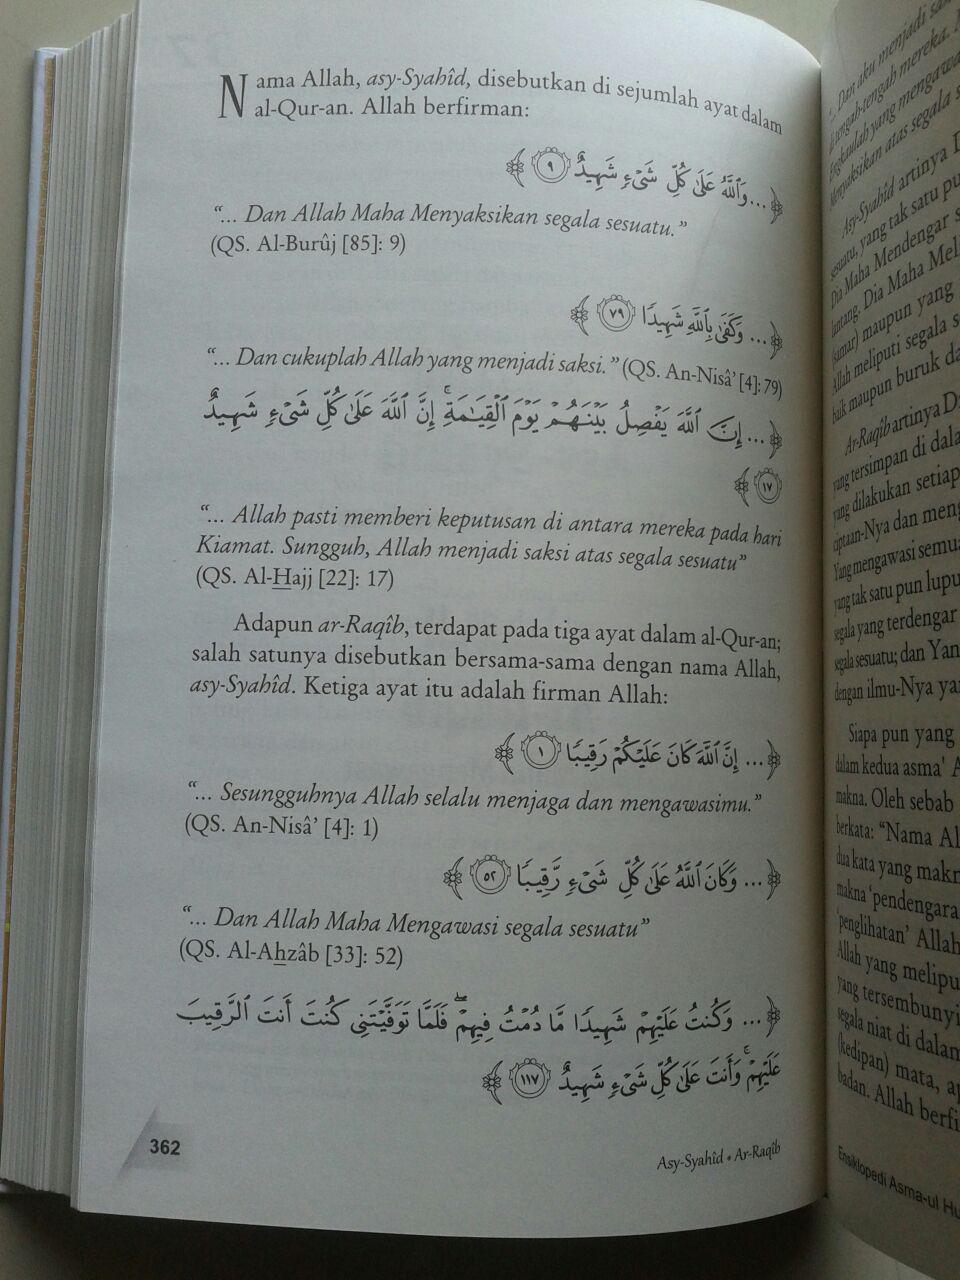 Nama Allah, asy-Syahîd, disebutkan di sejumlah ayat dalam
al-Qur-an. Allah berfirman:
﴿... وَٱللَّهُ عَلَىٰ كُلِّ شَىْءٍ شَهِيدٌ ۝٩﴾
“... Dan Allah Maha Menyaksikan segala sesuatu.”
(QS. Al-Burûj [85]: 9)
﴿... وَكَفَىٰ بِٱللَّهِ شَهِيدًا ۝٧٩﴾
“... Dan cukuplah Allah yang menjadi saksi.” (QS. An-Nisâ’ [4]: 79)
﴿... إِنَّ ٱللَّهَ يَفْصِلُ بَيْنَهُمْ يَوْمَ ٱلْقِيَـٰمَةِ ۚ إِنَّ ٱللَّهَ عَلَىٰ كُلِّ شَىْءٍ شَهِيدٌ
۝١٧﴾
“... Allah pasti memberi keputusan di antara mereka pada hari
Kiamat. Sungguh, Allah menjadi saksi atas segala sesuatu”
(QS. Al-Hajj [22]: 17)
Adapun ar-Raqîb, terdapat pada tiga ayat dalam al-Qur-an;
salah satunya disebutkan bersama-sama dengan nama Allah,
asy-Syahîd. Ketiga ayat itu adalah firman Allah:
﴿... إِنَّ ٱللَّهَ كَانَ عَلَيْكُمْ رَقِيبًا ۝١﴾
“... Sesungguhnya Allah selalu menjaga dan mengawasimu.”
(QS. An-Nisâ’ [4]: 1)
﴿... وَكَانَ ٱللَّهُ عَلَىٰ كُلِّ شَىْءٍ رَّقِيبًا ۝٥٢﴾
“... Dan Allah Maha Mengawasi segala sesuatu”
(QS. Al-Ahzâb [33]: 52)
﴿... وَكُنتُ عَلَيْهِمْ شَهِيدًا مَّا دُمْتُ فِيهِمْ ۖ فَلَمَّا تَوَفَّيْتَنِى كُنتَ أَنتَ ٱلرَّقِيبَ
عَلَيْهِمْ ۚ وَأَنتَ عَلَىٰ كُلِّ شَىْءٍ شَهِيدٌ ۝١١٧﴾
362
Asy-Syahîd • Ar-Raqîb
“... Dan aku menjadi
di tengah-tengah mereka.
Engkaulah yang
Menyaksikan atas segala
Asy-Syahîd artinya
sesuatu, yang tak satu
Dia Maha Mendengar
lantang. Dia Maha
(samar) maupun yang
Allah meliputi segala
baik maupun buruk
Ar-Raqîb artinya
yang tersimpan di
yang dilakukan setiap
ciptaan-Nya dan
Yang mengawasi
yang tak satu pun
segala yang terdengar
segala sesuatu; dan
dengan ilmu-Nya
Siapa pun yang
dalam kedua asma'
makna. Oleh sebab
berkata: “Nama
dua kata yang
makna
Allah yang
yang
segala niat di dalam
(kedipan) mata,
badan. Allah
Ensiklopedi Asma-ul